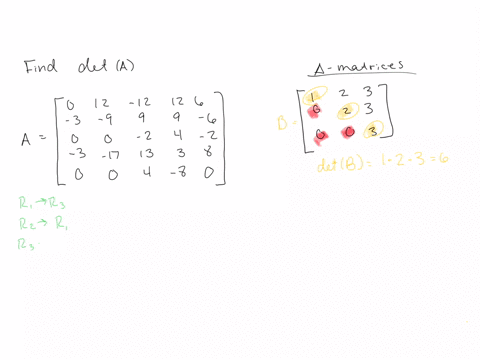 Find det(A)
A = [ 0 12 -12 12 6
-3 -9 9 9 -6
0 0 -2 4 -2
-3 -17 13 3 8
0 0 4 -8 0 ]
R1 → R3
R2 → R1
R3
Δ-matrices
B = [ 1 2 3
0 2 3
0 0 3 ]
det(B) = 1 • 2 • 3 = 6